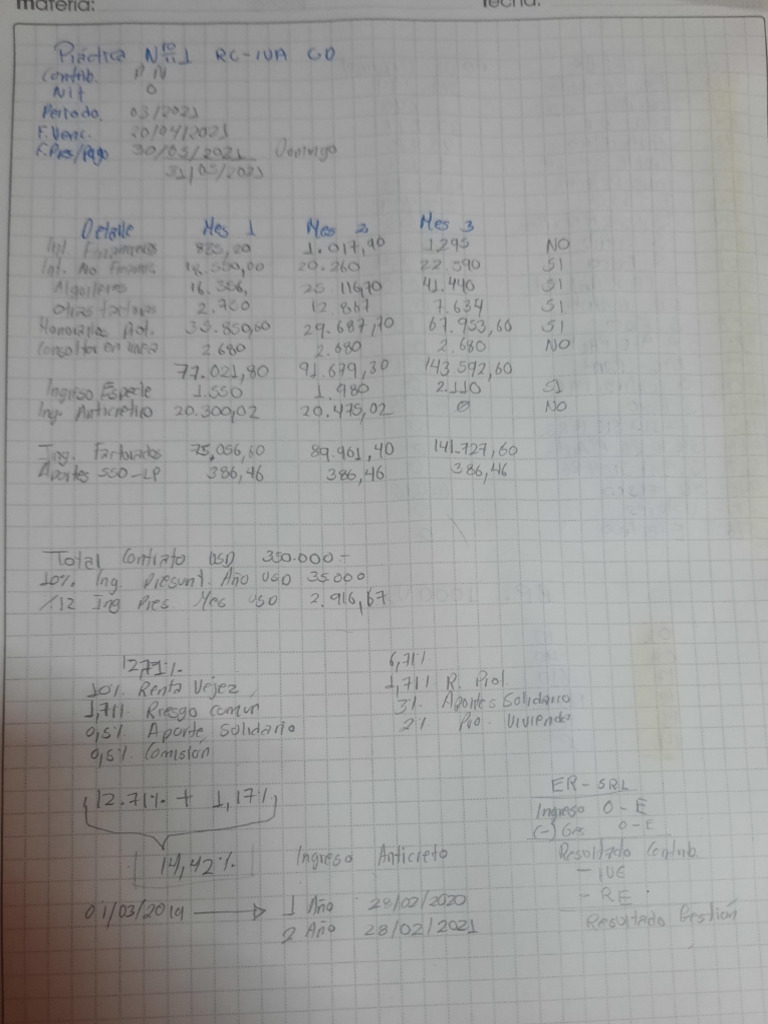 materia: fecha:
Práctica Nº 1 RC-IVA CD
Contrib. P N
Nit 0
Periodo. 03/2021
F. Venc. 20/04/2021
F. Pres/Pago 30/05/2021 Domingo
31/05/2021
Detalle Mes 1 Mes 2 Mes 3
Int. 1.017,90 1.295 NO
Int. No 20.260 22.590 SI
41.440 SI
Otras 7.634 SI
Honorarios 35.850,60 29.687,70 67.953,60 SI
Consultor en 2.680 2.680 2.680 NO
77.021,80 91.679,30 143.592,60
Ingreso Especie 1.550 1.980 2.110 SI
Ing. Anticretico 20.300,02 20.475,02 0 NO
Ing. Facturados 75,056,60 89.961,40 141.727,60
Aportes SSO-LP 386,46 386,46 386,46
Total Contrato USD 350.000-
10% Ing. Presunt. Año USD 35.000
/12 Ing Pres Mes USD 2.916,67
12,71% 6,71%
10% Renta Vejez 1,71% R. Prof.
1,71% Riesgo comun 3% Aportes Solidario
0,5% Aporte Solidario 2% Pro. Vivienda
0,5% Comisión
12.71% + 1,17% ER-SRL
Ingreso 0-E
(-) 0-E
14,42% Ingreso Anticreto Resultado Contab.
- IUE
01/03/2019 → 1 Año 28/02/2020 - RE
2 Año 28/02/2021 Resultado Gestión